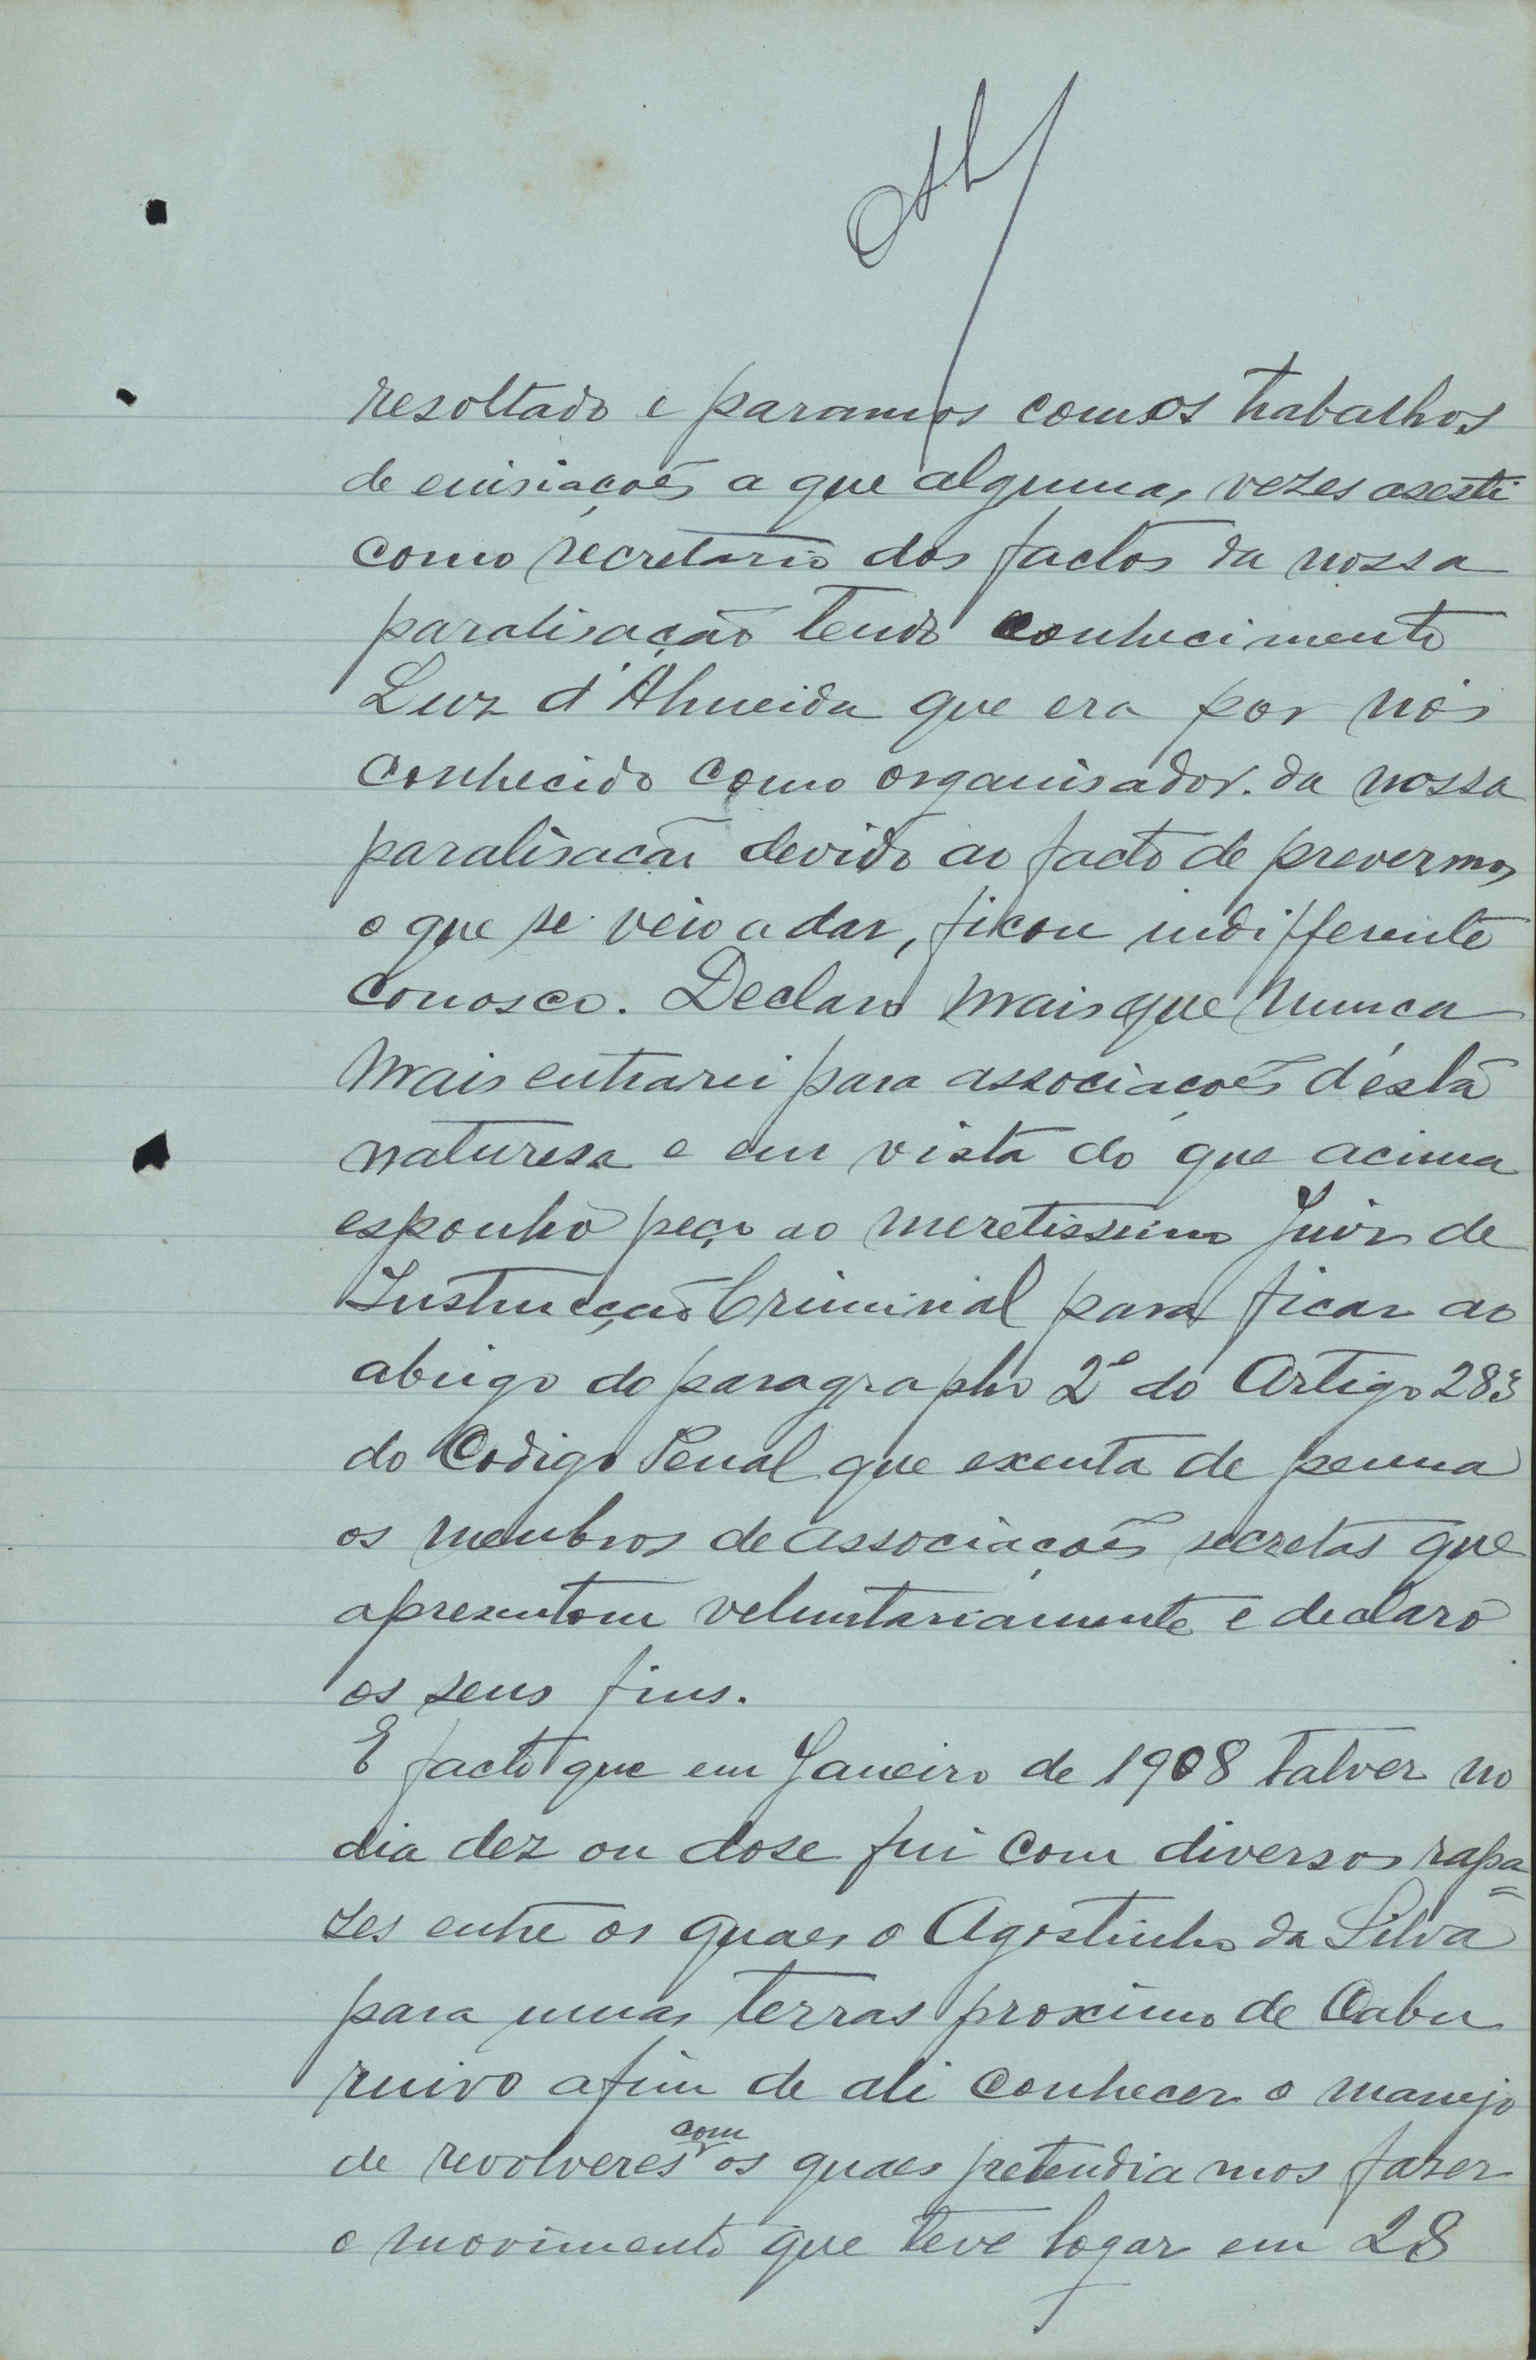 resoltado e paramos com os trabalhos
de enisiações a que algumas vezes asesti
como secretario dos factos da nossa
paralisação tendo conhecimento
Luz d'Almeida que era por nós
conhecido como organisador. da nossa
paralisacão devido ao facto de prevermos
o que se veio a dar, ficou indifferente
conosco. Declaro mais que nunca
mais entrarei para associações d'esta
naturesa e em vista do que acima
esponho peço ao meretissimo Juiz de
Instrucção Criminal para ficar ao
abrigo do paragrapho 2º do Artigo 283
do Codigo Penal que exenta de penna
os membros de associações secretas que
apresentem veluntariamente e declaro
os seus fins.
E facto que em Janeiro de 1908 talvez no
dia dez ou dose fui com diversos rapa=
zes entre os quaes o Agostinho da Silva
para umas terras proximo de Cabu
ruivo afim de ali conhecer o manejo
de revolveres com os quaes pretendiamos fazer
o movimento que teve logar em 28